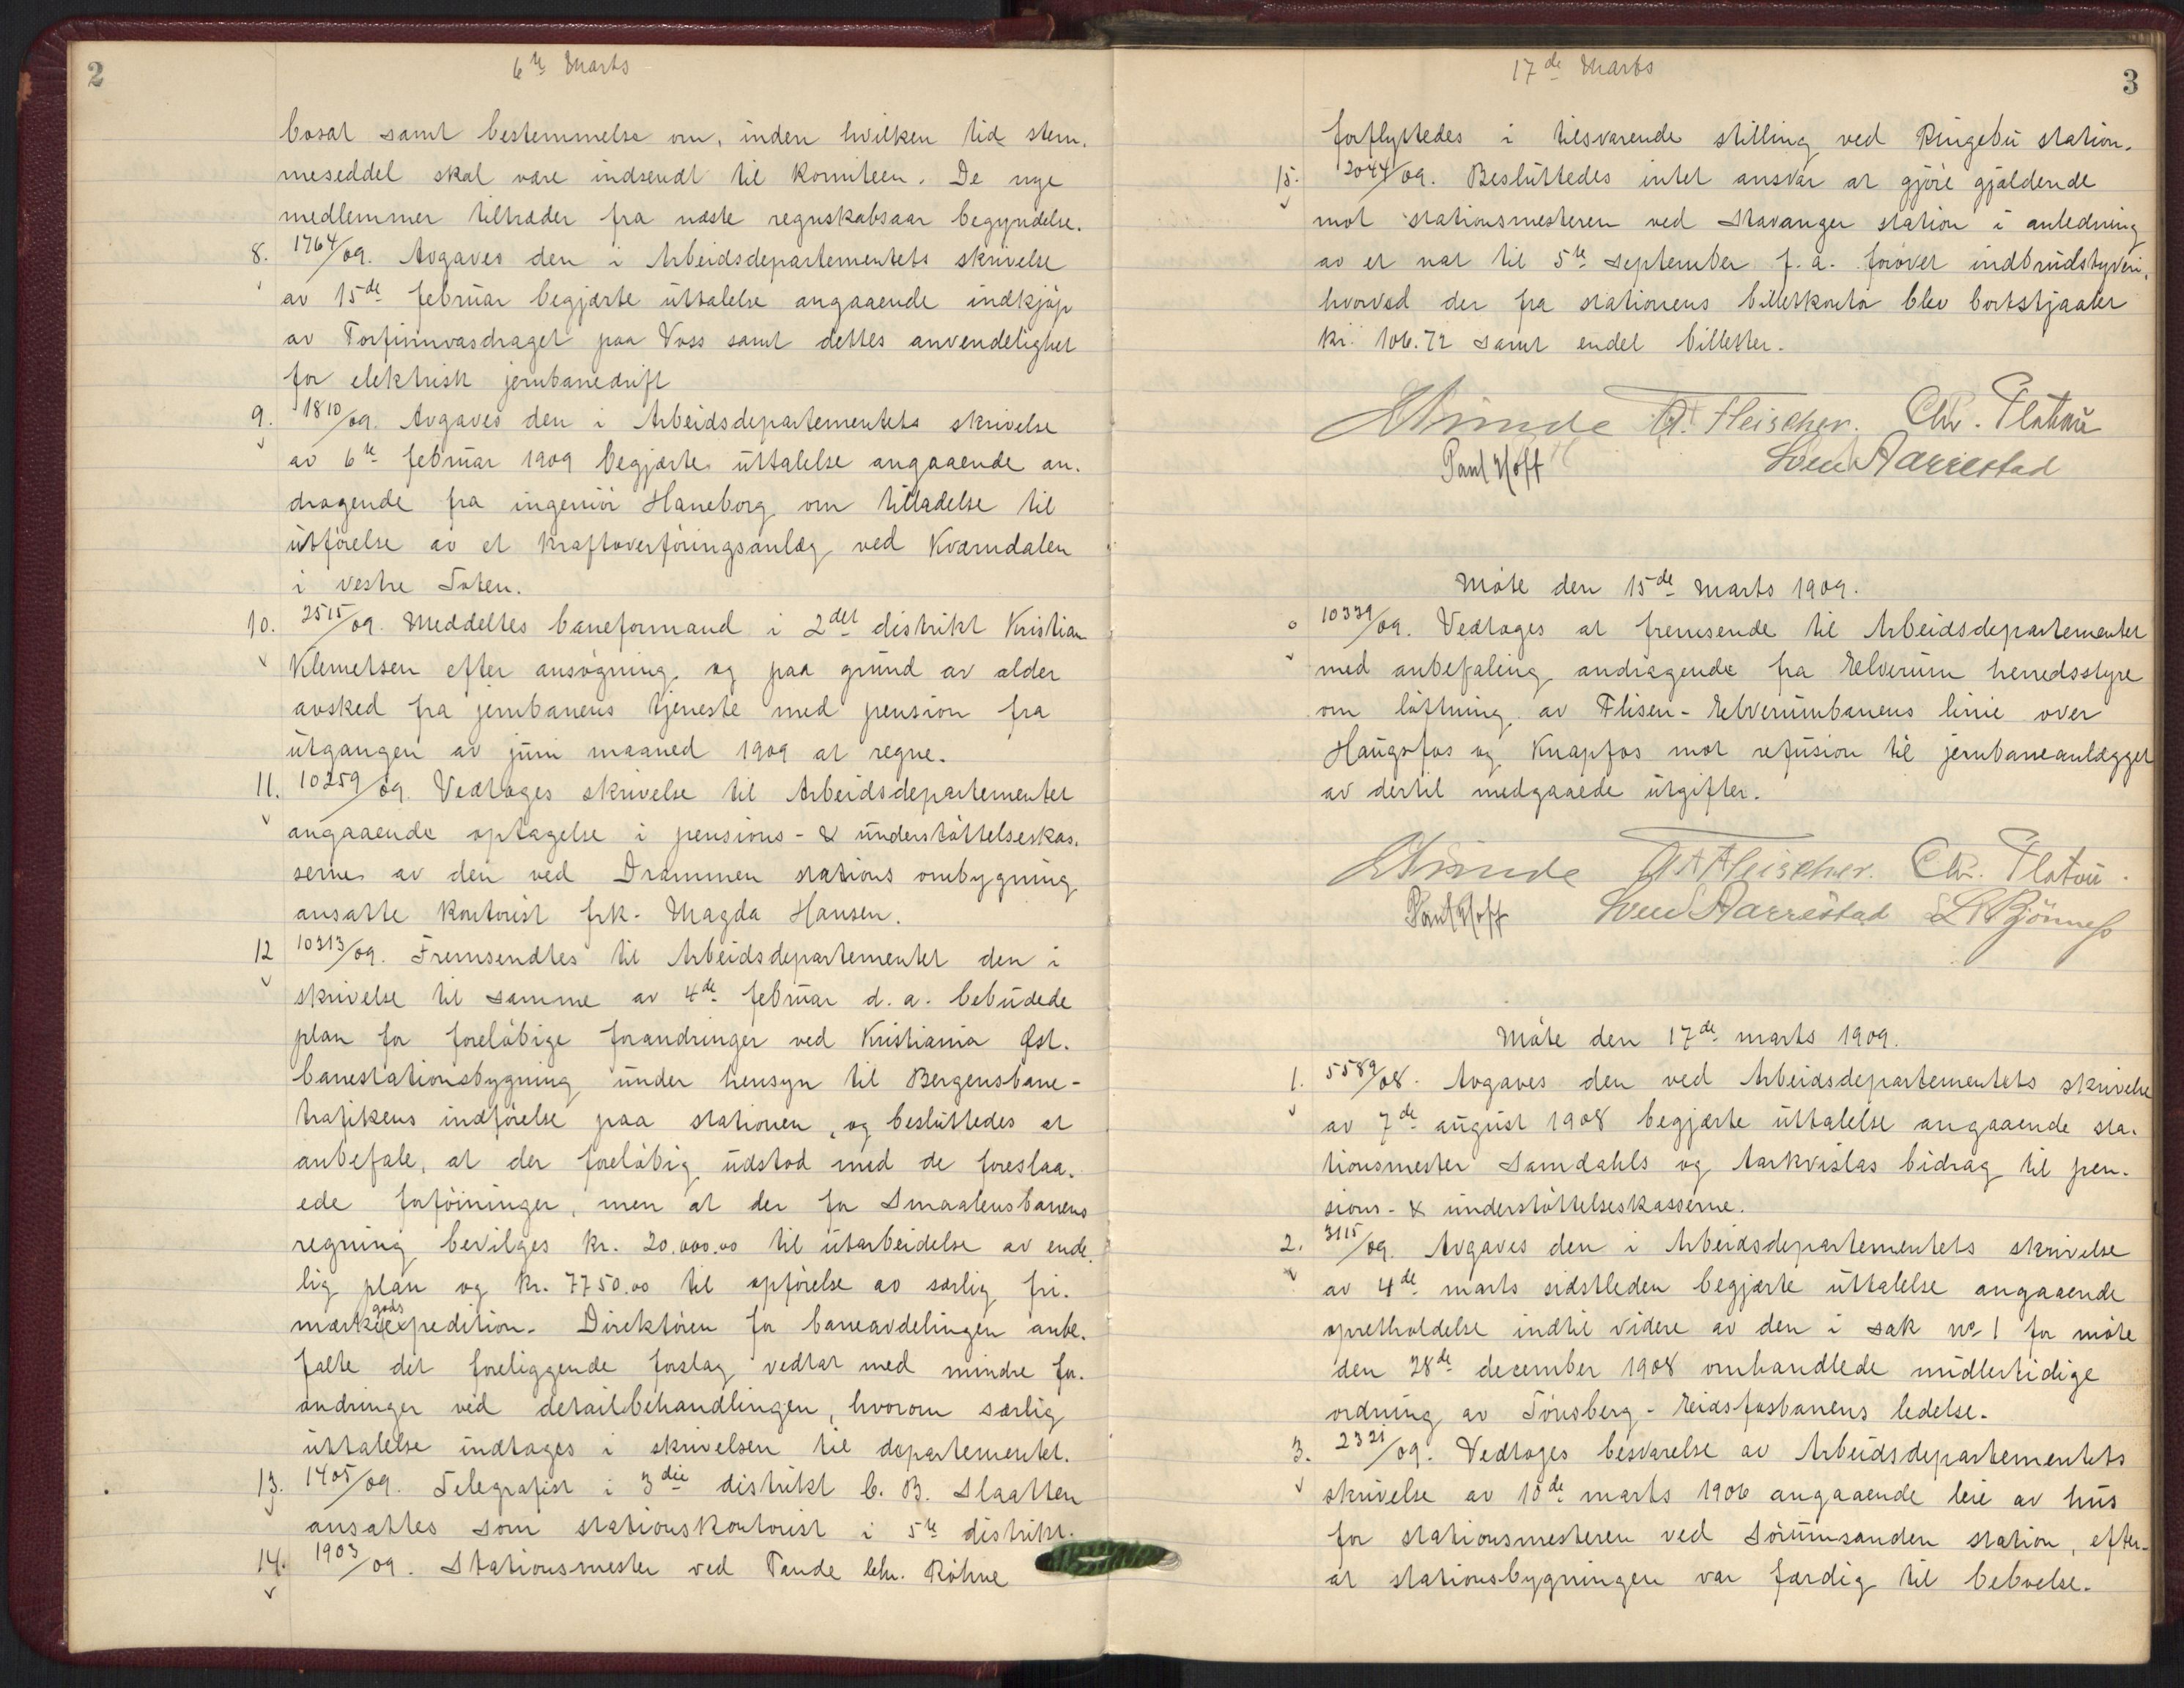 2
6te Marts
bosat samt bestemmelse om, inden hvilken tid stem-
meseddel skal være indsendt til komiteen. De nye
medlemmer tiltræder fra næste regnskabsaar begyndelse.
8. 1764/09. Avgaves den i Arbeidsdepartementets skrivelse
av 15de februar begjærte uttalelse angaaende indkjøp
av Torfinnvasdraget paa Voss samt dettes anvendelighet
for elektrisk jernbanedrift
9. 1810/09. Avgaves den i Arbeidsdepartementets skrivelse
av 6te februar 1909 begjærte uttalelse angaaende an-
dragende fra ingeniör Haneborg om tilladelse til
utförelse av et kraftoverföringsanlæg ved Kværndalen
i vestre Toten.
10. 2515/09. Meddeltes baneformand i 2det distrikt Kristian
Klemetsen efter ansögning og paa grund av alder
avsked fra jernbanens tjeneste med pension fra
utgangen av juni maaned 1909 at regne.
11. 10259/09. Vedtoges skrivelse til Arbeidsdepartementet
angaaende optagelse i pensions- & understöttelseskas-
serne av den ved Drammen stations ombygning
ansatte kontorist frk. Magda Hansen.
12 10313/09. Fremsendtes til Arbeidsdepartementet den i
skrivelse til samme av 4de februar d.a. bebudede
plan for forelöbige forandringer ved Kristiania Øst-
banestationsbygning under hensyn til Bergensbane-
trafikens indförelse paa stationen, og besluttedes at
anbefale, at der forelöbig udstod med de foreslaa-
ede forföininger, men at der for Smaalensbanens
regning bevilges kr. 20.000.00 til utarbeidelse av ende-
lig plan og kr. 7750.00 til opförelse av særlig fri-
gods
mærkeexpedition. Direktören for baneavdelingen anbe-
falte det foreliggende forslag vedtat med mindre for-
andringer ved detailbehandlingen, hvorom særlig
uttalelse indtages i skrivelsen til departementet.
13. 1405/09. Telegrafist i 3die distrikt C. B. Slaatten
ansattes som stationskontorist i 5te distrikt.
14. 1903/09. Stationsmester ved Tande Chr. Röhne
17de Marts
3
forflyttedes i tilsvarende stilling ved Ringebu station.
15. 2044/09. Besluttedes intet ansvar at gjöre gjældende
mot stationsmesteren ved Stavanger station i anledning
av et nat til 5te september f.a. forövet indbrudstyveri,
hvorved der fra stationens billetkontor blev bortstjaalet
kr. 106.72 samt endel billetter.
A. Fleischer. Chr. Platou
Paul Hoff Sven Aarrestad
Möte den 15de marts 1909.
10339/09. Vedtoges at fremsende til Arbeidsdepartementet
med anbefaling andragende fra Elverum herredsstyre
om löftning av Flisen-Elverumbanens linie over
Haugsfos og Knapfos mot refusion til jernbaneanlægget
av dertil medgaaede utgifter.
A. Fleischer. Chr. Platou.
Paul Hoff Sven Aarrestad Björnness
Möte den 17de marts 1909.
1. 5589/08. Avgaves den ved Arbeidsdepartementets skrivelse
av 7de august 1908 begjærte uttalelse angaaende sta-
tionsmester Samdahls og Aarkvislas bidrag til pen-
sions- & understöttelseskasserne.
2. 3115/09. Avgaves den i Arbeidsdepartementets skrivelse
av 4de marts sidstleden begjærte uttalelse angaaende
opretholdelse indtil videre av den i sak no 1 for möte
den 28de december 1908 omhandlede midlertidige
ordning av Tönsberg-Eidsfosbanens ledelse.
3. 2321/09. Vedtoges besvarelse av Arbeidsdepartementets
skrivelse av 10de marts 1906 angaaende leie av hus
for stationsmesteren ved Sörumsanden station, efter-
at stationsbygningen var færdig til beboelse.